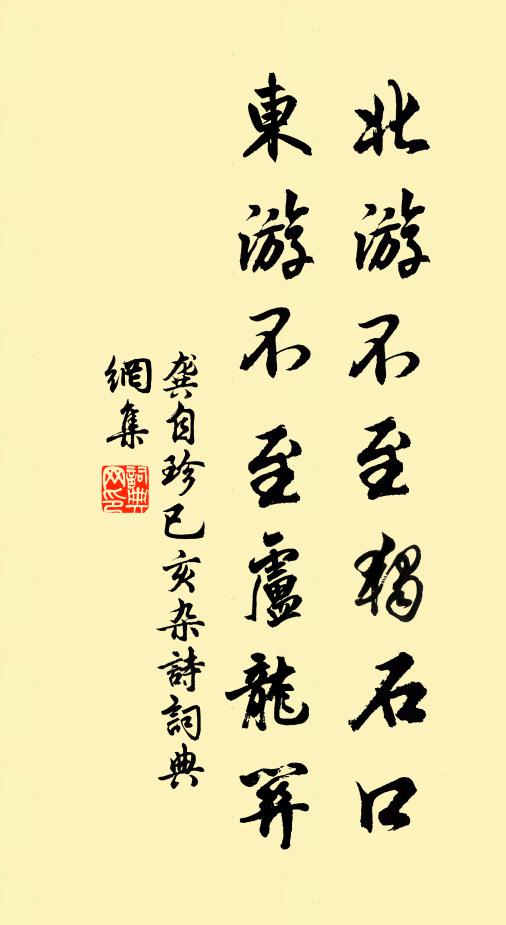 北游不至獨石口
東游不至盧龍關
龔自珍己亥杂詩詞典
網集
詞典網印